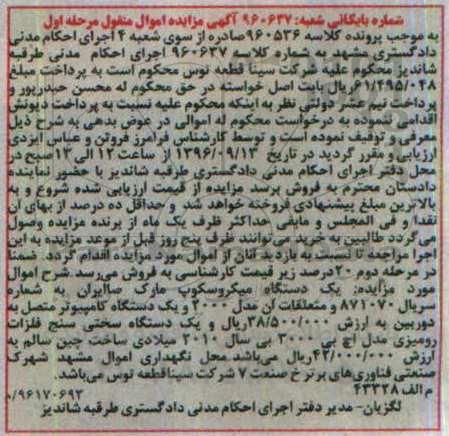 شماره بایگانی شعبه: ۹۶۰۶۳۷ آگهی مزایده اموال منقول مرحله اول
به موجب پرونده کلاسه ۹۶۰۵۳۶ صادره از سوی شعبه ۴ اجرای احکام مدنی
دادگستری مشهد به شماره کلاسه ۹۶۰۶۳۷ اجرای احکام مدنی طرقبه
شاندیز محکوم علیه شرکت سینا قطعه توس محکوم است به پرداخت مبلغ
۶۱/۴۹۵/۰۴۸ ریال بابت اصل خواسته در حق محکوم له محسن حیدرپور و
پرداخت نیم عشر دولتی نظر به اینکه محکوم علیه نسبت به پرداخت دیونش
اقدامی ننموده به درخواست محکوم له اموالی در عوض بدهی به شرح ذیل
معرفی و توقیف نموده است و توسط کارشناس فرامرز فروتن و عباس ایزدی
ارزیابی و مقرر گردید در تاریخ ۱۳۹۶/۰۹/۱۳ از ساعت ۱۲ الی ۱۳ صبح در
محل دفتر اجرای احکام مدنی دادگستری طرقبه شاندیز با حضور نماینده
دادستان محترم به فروش برسد مزایده از قیمت ارزیابی شده شروع و به
بالاترین مبلغ پیشنهادی فروخته خواهد شد و حداقل ده درصد از بهای آن
نقدا و فی المجلس و مابقی حداکثر ظرف یک ماه از برنده مزایده وصول
می‌گردد طالبین به خرید می‌توانند ظرف پنج روز قبل از موعد مزایده به این
اجرا مراجعه تا نسبت به بازدید آنان از اموال مورد مزایده اقدام گردد. ضمنا
در مرحله دوم ۲۰ درصد زیر قیمت کارشناسی به فروش می‌رسد. شرح اموال
مورد مزایده: یک دستگاه میکروسکوپ مارک صاایران به شماره
سریال ۸۷۱۰۷۰ و متعلقات آن مدل ۲۰۰۰ و یک دستگاه کامپیوتر متصل به
دوربین به ارزش ۳۸/۵۰۰/۰۰۰ ریال و یک دستگاه سختی سنج فلزات
رومیزی مدل اچ بی ۳۰۰۰ بی سال ۲۰۱۰ میلادی ساخت چین سالم به
ارزش ۴۲/۰۰۰/۰۰۰ ریال می‌باشد. محل نگهداری اموال مشهد شهرک
صنعتی فناوری‌های برتر خ صنعت ۷ شرکت سینا قطعه توس می‌باشد.
م الف ۴۳۳۲۸
۹۶۱۷۰۶۹۲/و
لگزیان- مدیر دفتر اجرای احکام مدنی دادگستری طرقبه شاندیز